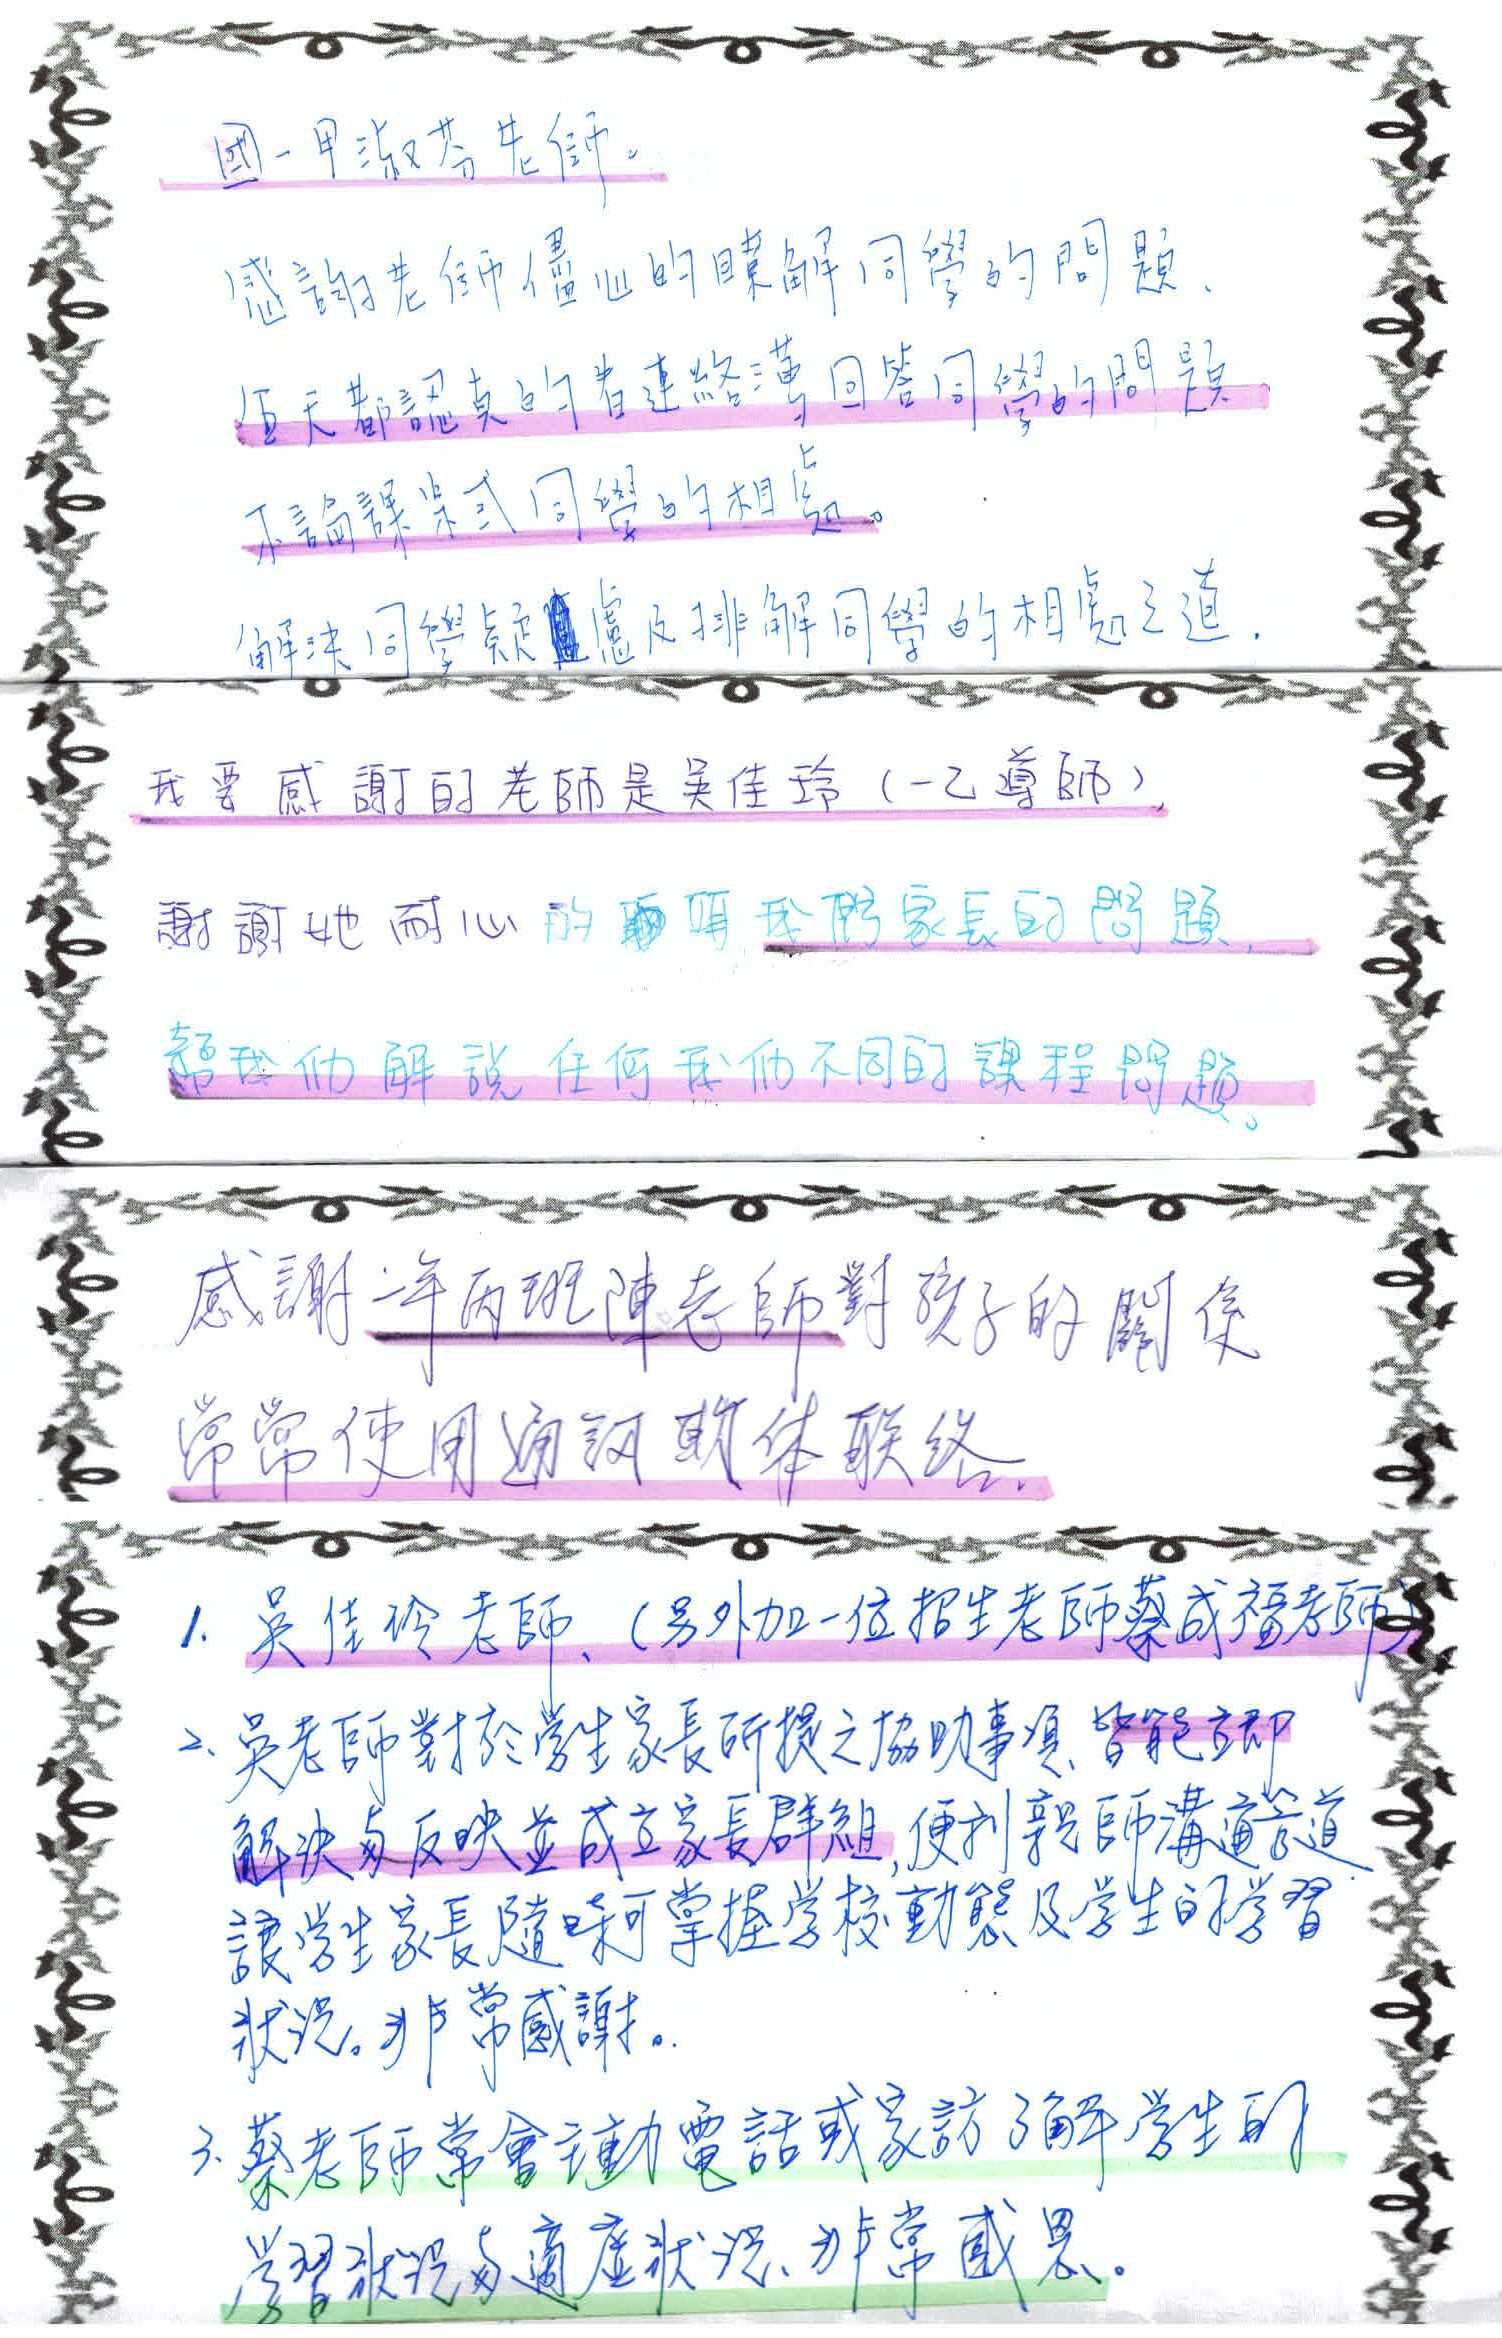 國一甲淑芬老師。
感謝老師儘心的瞭解同學的問題、
值天都認真的看連絡溥回答同學的問題
不論課業或同學的相處。
解決同學疑慮及排解同學的相處之道.
我要感謝的老師是吳佳玲(一乙導師),
謝謝她耐心的 我們家長的問題,
幫我們解說任何我們不同的課程問題。
感謝一年丙班陳老師對孩子的關係
常常使用通訊軟体联络.
1. 吳佳玲老師、(另外加一位招生老師蔡成福老師)
2、吳老師對於學生家長所提之協助事項、皆能立即
解決與反映並成立家長群組,便利親師溝通管道
讓學生家長隨時可掌握学校動態及学生的学習
狀況。非常感謝。
3、蔡老師常會主動電話或家訪了解学生的
学習狀況与適應狀況、非常感恩。